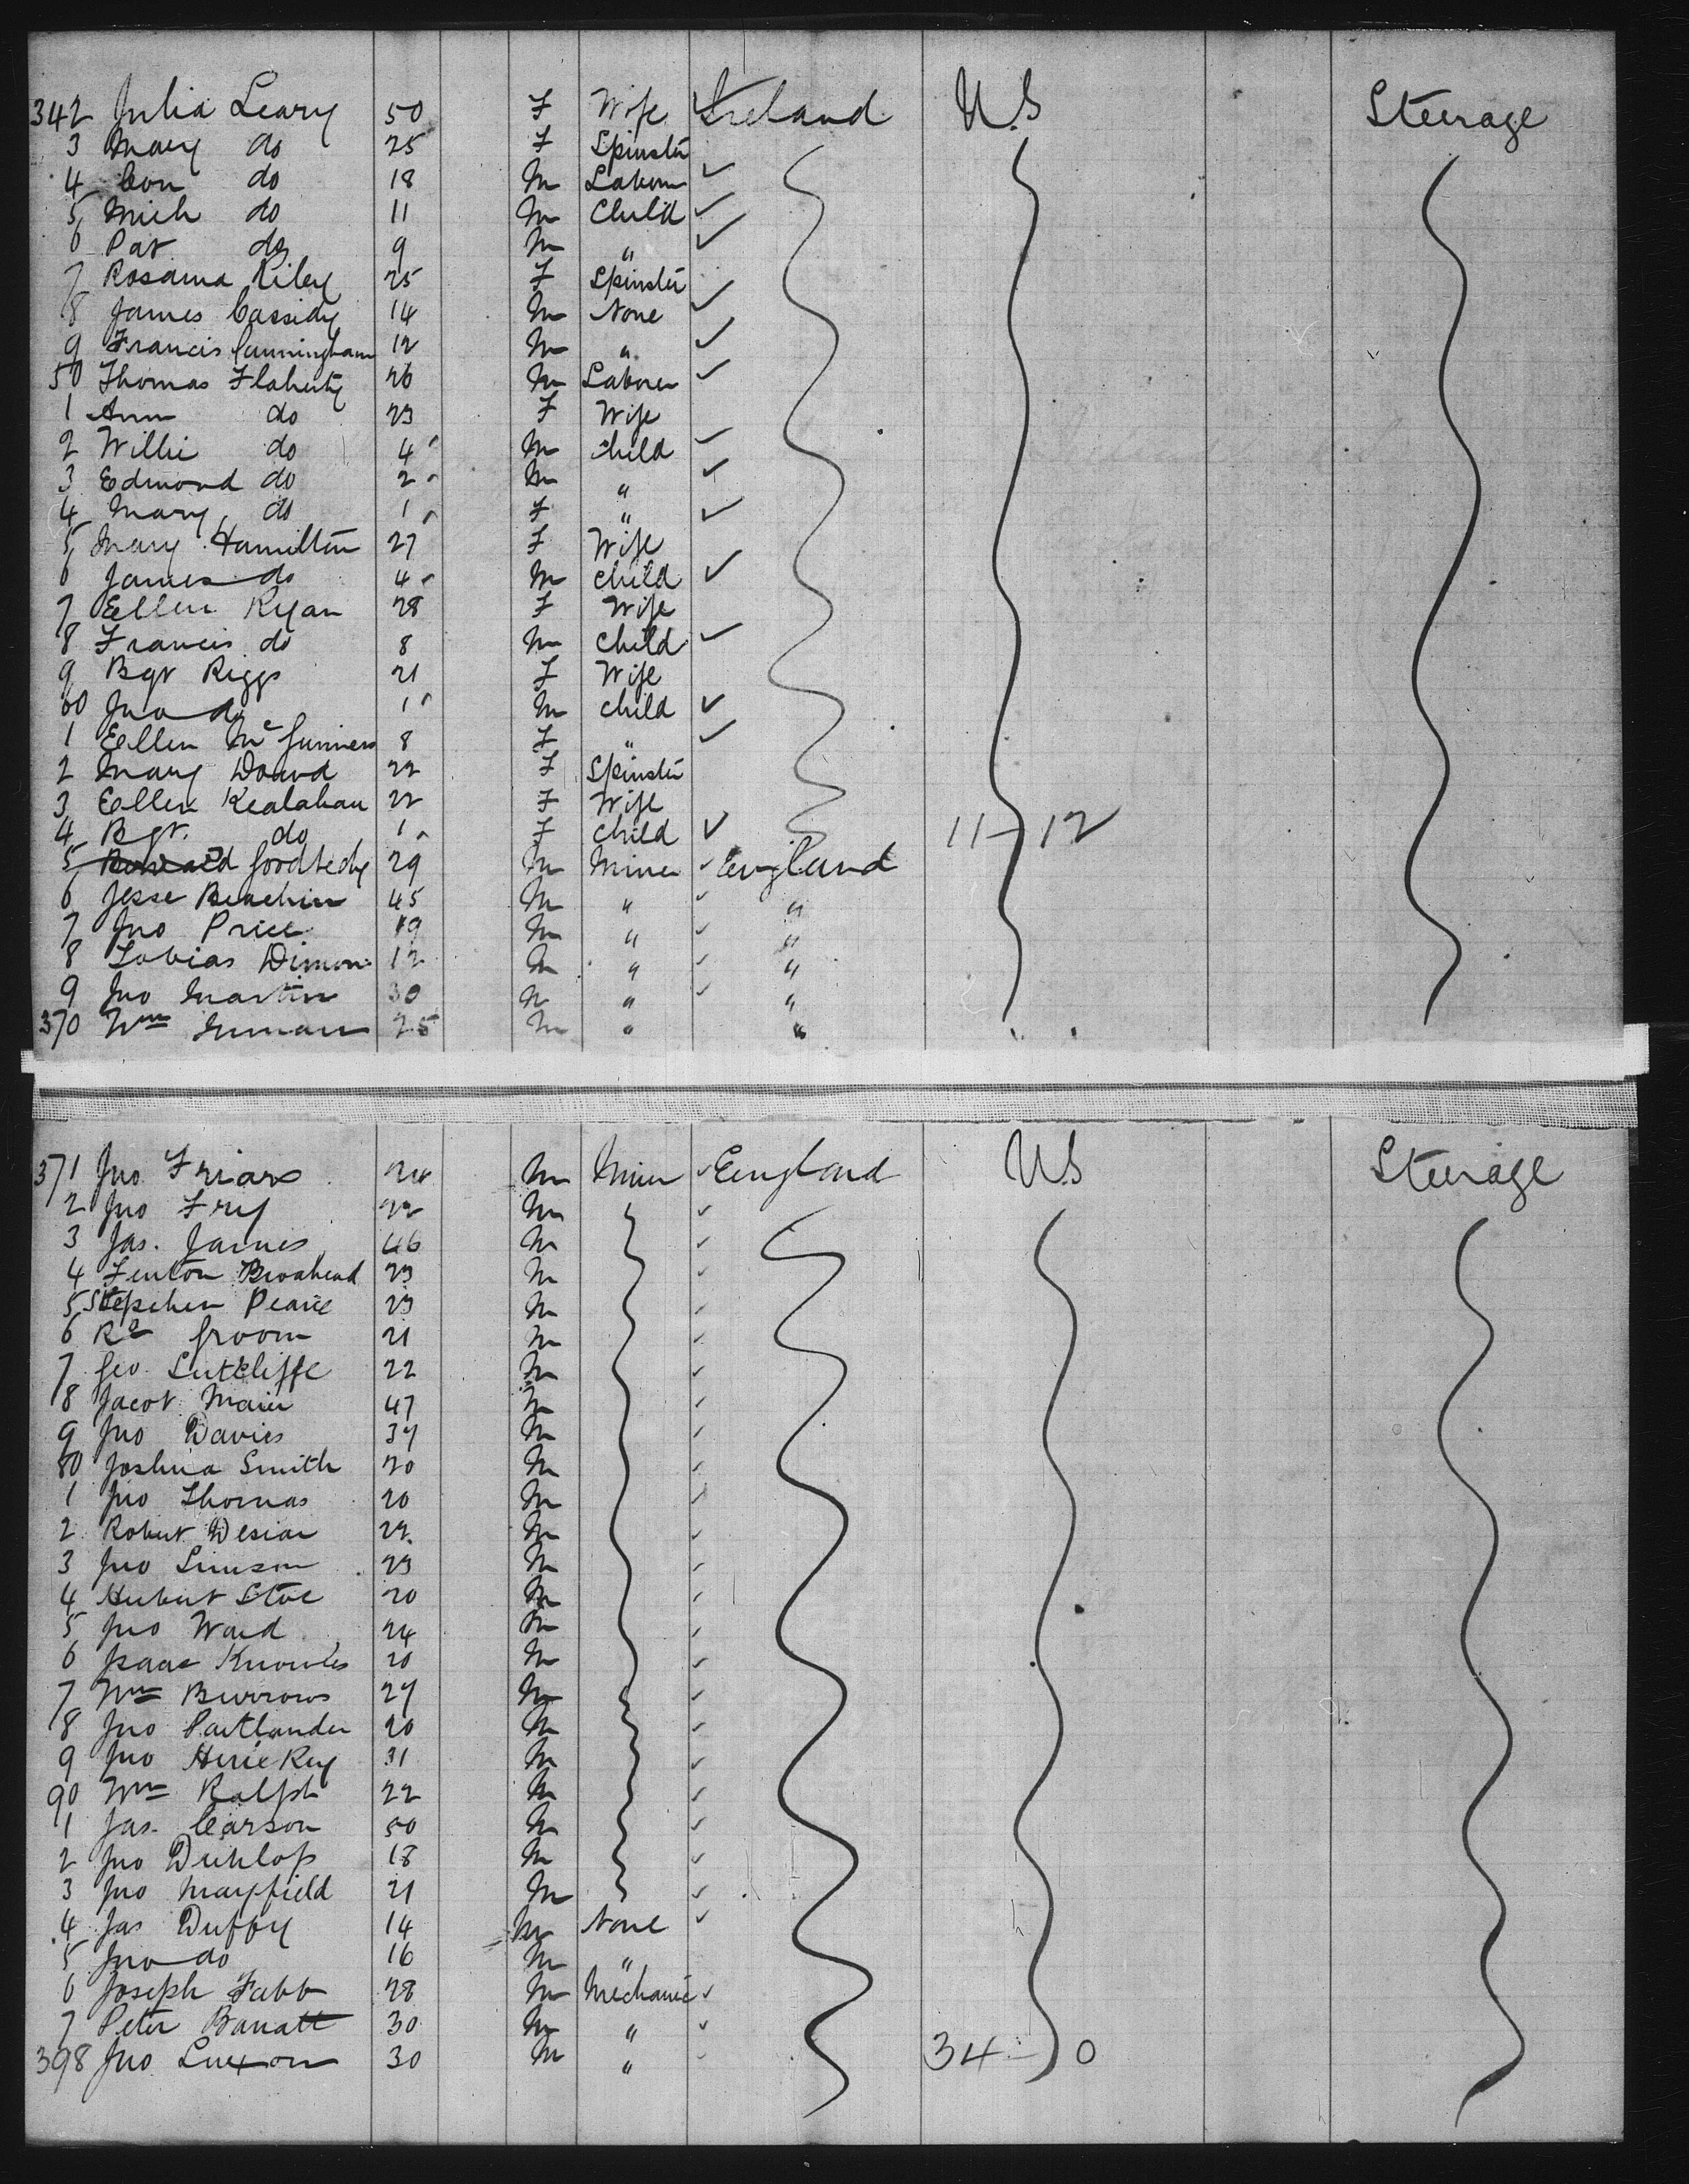 342 Julia Leary 50 F Wife Ireland U.S Steerage
3 Mary do 25 F Spinster
4 Con do 18 M Labour
5 Mich do 11 M Child
6 Pat do 9 M "
7 Rosanna Riley 25 F Spinster
8 James Cassidy 14 M None
9 Francis Cunningham 12 M "
50 Thomas Flaherty 26 M Laborer
1 Ann do 23 F Wife
2 Willie do 4 M Child
3 Edmond do 2 M "
4 Mary do 1 F "
5 Mary Hamilton 27 F Wife
6 James do 4 M Child
7 Ellen Ryan 28 F Wife
8 Francis do 8 M Child
9 Bgt Riggs 21 F Wife
60 Jno do 1 M Child
1 Ellen Mc 8 F "
2 Mary 22 F Spinster
3 Ellen Kealahan 22 F Wife
4 Bgt. do 1 F Child 11-12
5 29 M Miner England
6 Jesse 45 M " "
7 Jno Price 19 M " "
8 Tobias 12 M " "
9 Jno Martin 30 M " "
370 Wm 25 M " "
371 Jno Friars 24 M Miner England U.S Steerage
2 Jno Fry 22 M
3 Jas. James 46 M
4 Fenton Broahead 23 M
5 Stepehen Pearce 23 M
6 Rd Groom 21 M
7 Geo. Sutcliffe 22 M
8 Jacob Maier 47 M
9 Jno Davies 34 M
80 Joshua Smith 20 M
1 Jno Thomas 20 M
2 Robert 22 M
3 Jno Simson 23 M
4 Hubert 20 M
5 Jno Ward 24 M
6 Isaac Knowles 20 M
7 Wm Burrows 24 M
8 Jno Partlander 20 M
9 Jno 31 M
90 Wm Ralph 22 M
1 Jas. Carson 50 M
2 Jno Dunlop 18 M
3 Jno Mayfield 21 M
4 Jas Duffy 14 M None
5 Jno do 16 M "
6 Joseph Fabb 28 M Mechanic
7 Peter Barratt 30 M "
398 Jno Luxon 30 M " 34-0